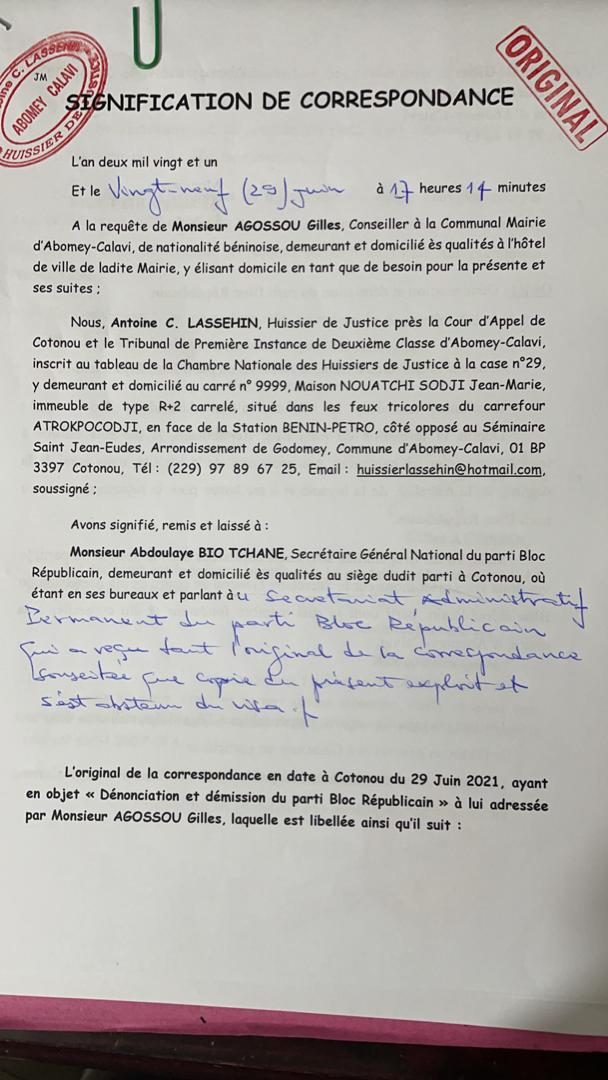 ine C. LASSEHIN
JM
ABOMEY CALAVI
HUISSIER DE JUSTICE
ORIGINAL
SIGNIFICATION DE CORRESPONDANCE
L'an deux mil vingt et un
Et le Vingt-neuf (29) juin à 17 heures 14 minutes
A la requête de Monsieur AGOSSOU Gilles, Conseiller à la Communal Mairie
d'Abomey-Calavi, de nationalité béninoise, demeurant et domicilié ès qualités à l'hôtel
de ville de ladite Mairie, y élisant domicile en tant que de besoin pour la présente et
ses suites ;
Nous, Antoine C. LASSEHIN, Huissier de Justice près la Cour d'Appel de
Cotonou et le Tribunal de Première Instance de Deuxième Classe d'Abomey-Calavi,
inscrit au tableau de la Chambre Nationale des Huissiers de Justice à la case n°29,
y demeurant et domicilié au carré n° 9999, Maison NOUATCHI SODJI Jean-Marie,
immeuble de type R+2 carrelé, situé dans les feux tricolores du carrefour
ATROKPOCODJI, en face de la Station BENIN-PETRO, côté opposé au Séminaire
Saint Jean-Eudes, Arrondissement de Godomey, Commune d'Abomey-Calavi, 01 BP
3397 Cotonou, Tél : (229) 97 89 67 25, Email : huissierlassehin@hotmail.com,
soussigné ;
Avons signifié, remis et laissé à :
Monsieur Abdoulaye BIO TCHANE, Secrétaire Général National du parti Bloc
Républicain, demeurant et domicilié ès qualités au siège dudit parti à Cotonou, où
étant en ses bureaux et parlant à u Secretariat Administratif
Permanent du parti Bloc Républicain
qui a reçu tant l'original de la correspondance
que copie du présent exploit et
s'est abstenu du visa
L'original de la correspondance en date à Cotonou du 29 Juin 2021, ayant
en objet « Dénonciation et démission du parti Bloc Républicain » à lui adressée
par Monsieur AGOSSOU Gilles, laquelle est libellée ainsi qu'il suit :